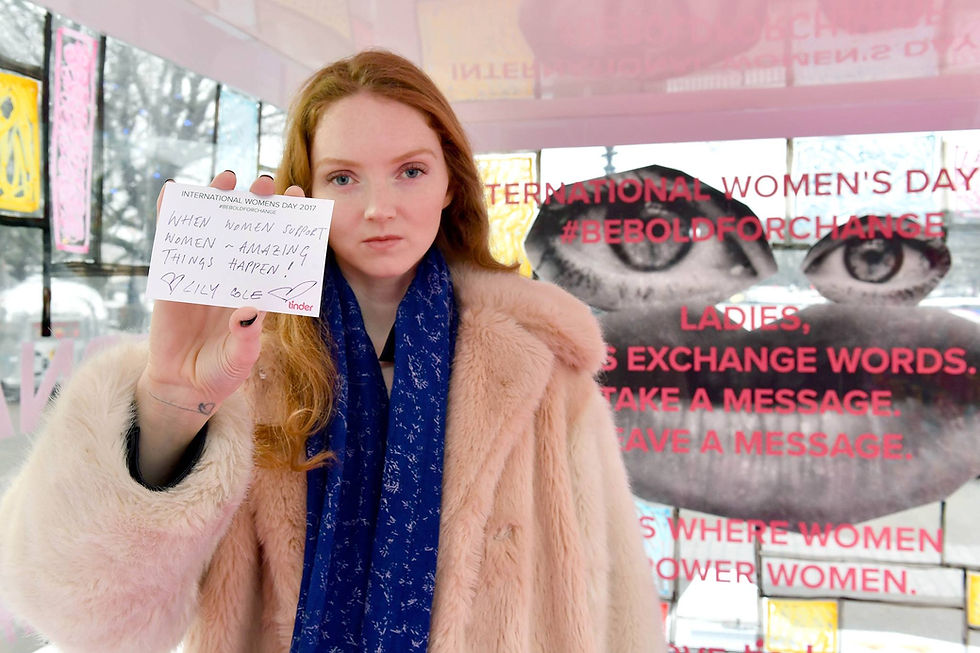 INTERNATIONAL WOMEN'S DAY
INTERNATIONAL WOMEN'S DAY 2017
#BEBOLDFORCHANGE
WHEN WOMEN SUPPORT
WOMEN ~ AMAZING
THINGS HAPPEN!
LILY COLE
tinder
TERNATIONAL WOMEN'S DAY
#BEBOLDFORCHANGE
LADIES,
S EXCHANGE WORDS.
TAKE A MESSAGE.
EAVE A MESSAGE.
S WHERE WOMEN
POWER WOMEN.